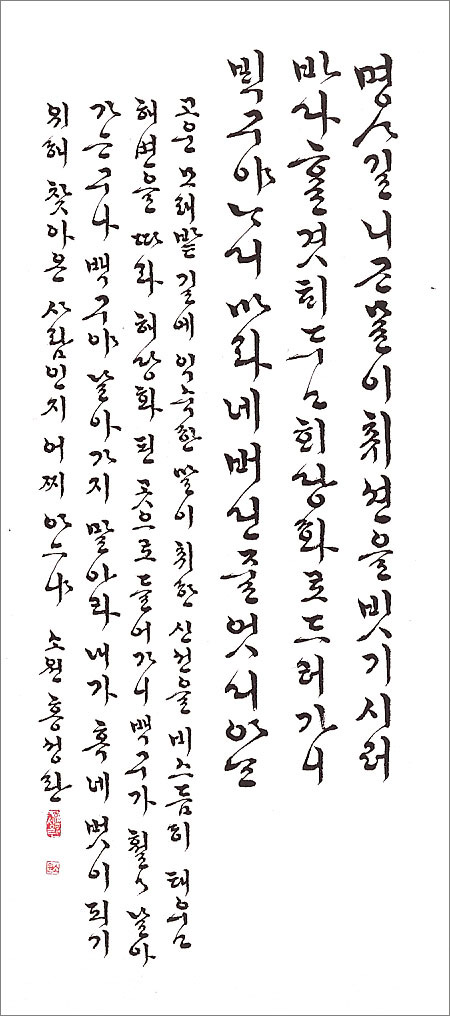 명사길 니근 ᄆᆞᆯ이 취션을 빗기 시러
바다흘 겻ᄒᆡ 두고 ᄒᆡ당화로 드러가니
ᄇᆡᆨ구야 ᄂᆞ디 마라 네 버딘 줄 엇디 아ᄂᆞᆫ
고운 모래밭 길에 익숙한 말이 취한 신선을 비스듬히 태우고
해변을 따라 해당화 핀 곳으로 들어가니 백구가 훨훨 날아
가는구나 백구야 날아가지 말아라 내가 혹 네 벗이 되기
위해 찾아온 사람인지 어찌 아느냐 소원